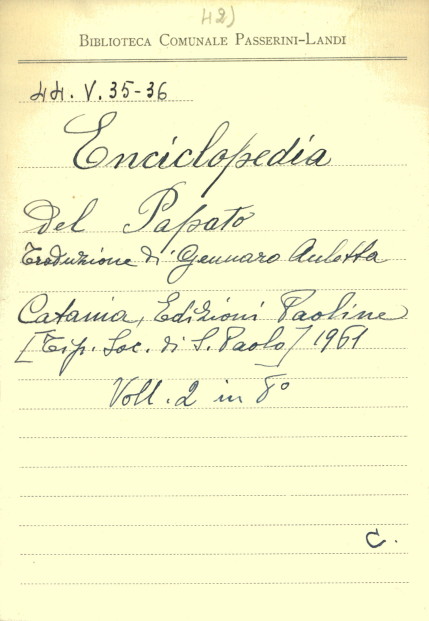 42)
BIBLIOTECA COMUNALE PASSERINI-LANDI
44. V. 35-36
Enciclopedia
del Papato
Traduzione di Gennaro Auletta
Catania, Edizioni Paoline
[Tip. Soc. di S. Paolo] 1961
Voll. 2 in 8°
C.